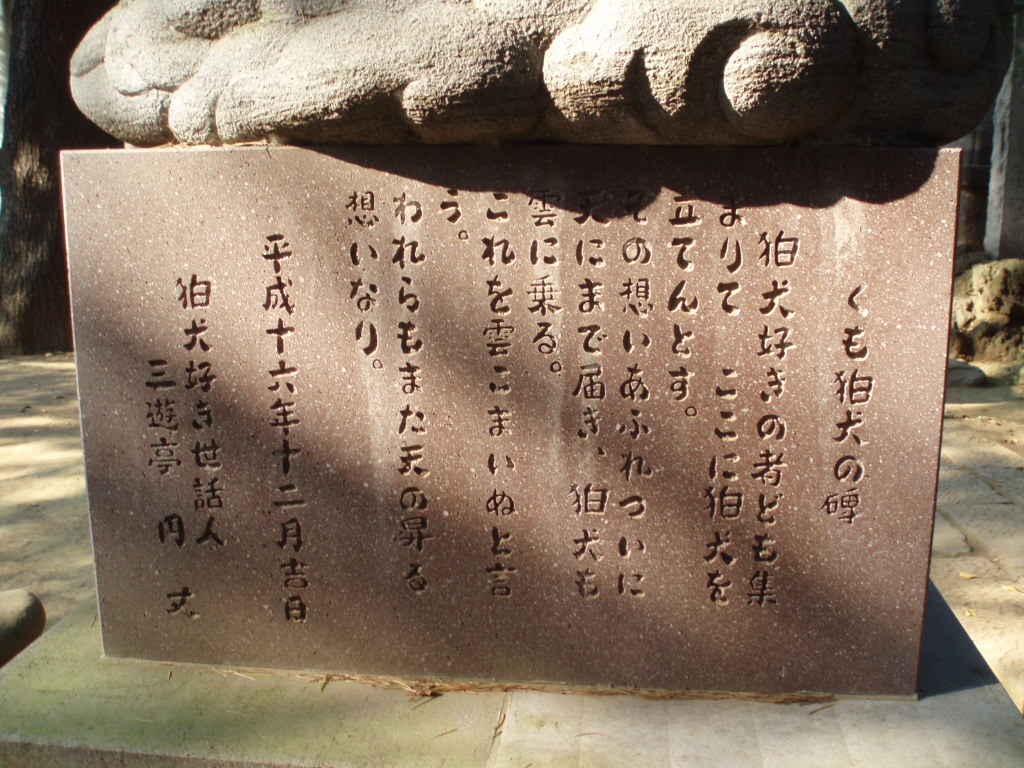 くも狛犬の碑
狛犬好きの者ども集
まりて　ここに狛犬を
立てんとす。
その想いあふれついに
天にまで届き、狛犬も
雲に乗る。
これを雲こまいぬと言
う。
われらもまた天の昇る
想いなり。
平成十六年十二月吉日
狛犬好き世話人
三遊亭　円　丈